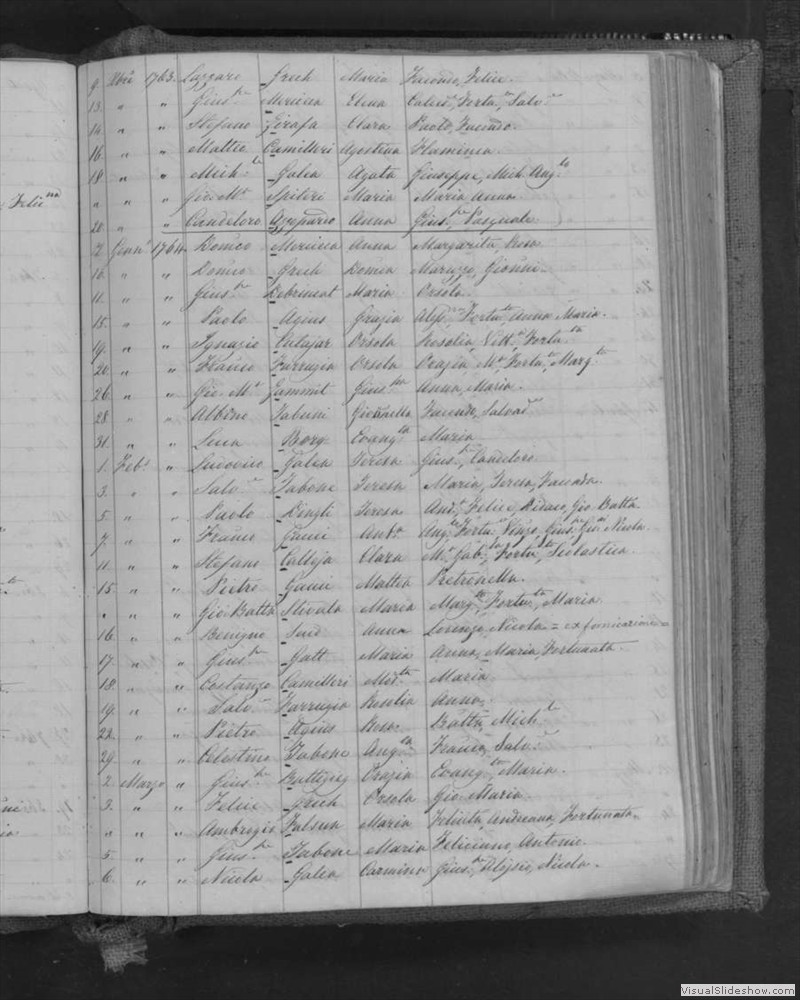 Feliċ na
9. Xbre 1763. Lazzaro Grech Maria Franco, Felice.
13. " " Gius.pe Mericca Elena Calced.a, Fortu.ta, Salv.r
14. " " Stefano Zirafa Clara Paolo, Facondo.
16. " " Matteo Camilleri Agostina Flaminea.
18. " " Mich.le Galea Agata Giuseppe, Mich. Ang.lo
" " " Gio. M.a Spiteri Maria Maria Anna.
20. " " Candeloro Azzopardo Anna Gius.pe, Pasquale.
7. Genn.o 1764. Dom.co Mericca Anna Margarita, Rosa.
10. " " Dom.co Grech Dom.ca Maruzzo, Gio:
11. " " Gius.pe Debrincat Maria Orsola.
15. " " Paolo Agius Grazia Aless., Fortu.to, Anna Maria.
19. " " Ignazio Cutajar Orsola Rosolia, Vitt.a, Fortu.ta
20. " " Franco Farrugia Orsola Grazia, M.a, Fortu.ta, Marg.ta
26. " " Gio. M.a Zammit Gius.ppa Anna, Maria.
28. " " Albino Tabuni Giovanella Facondo, Salvad.r
31. " " Luca Borg Evang.ta Maria
1. Feb.o " Ludovico Galea Teresa Gius.pe, Candeloro.
3. " " Salv.r Tabone Teresa Maria, Teresa, Faconda.
5. " " Paolo Dingli Teresa And.a, Felice, Didaco, Gio Batta.
7. " " Franco Gauci Ant.a Ang.lo, Fortu.to, Vinzo, Gius.pe, Gio., Nicola.
11. " " Stefano Calleja Clara M.a, Gab.la, Fortu.ta, Scolastica.
15. " " Pietro Gauci Mattia Petronella.
" " " Gio Batta Stivala Maria Marg.ta, Fortu.ta, Maria
16. " " Benigno Said Anna Lorenzo, Nicola = ex fornicazione =
17. " " Gius.pe Gatt Maria Anna, Maria, Fortunata.
18. " " Costanzo Camilleri Marg.ta Maria
19. " " Salv.r Farrugia Rosolia Anna.
22. " " Pietro Agius Rosa Batta, Mich.l
29. " " Celestino Tabone Ang.la Franco, Salv.r
2. Marzo " Gius.pe Buttigieg Grazia Evang.ta, Maria.
3. " " Felice Grech Orsola Gio. Maria.
" " " Ambrogio Falsun Maria Felicita, Andreana, Fortunata.
5. " " Gius.pe Tabone Maria Feliciano, Antonio.
6. " " Nicola Galea Carmina Gius.pe, Alojsio, Nicola.
VisualSlideshow.com